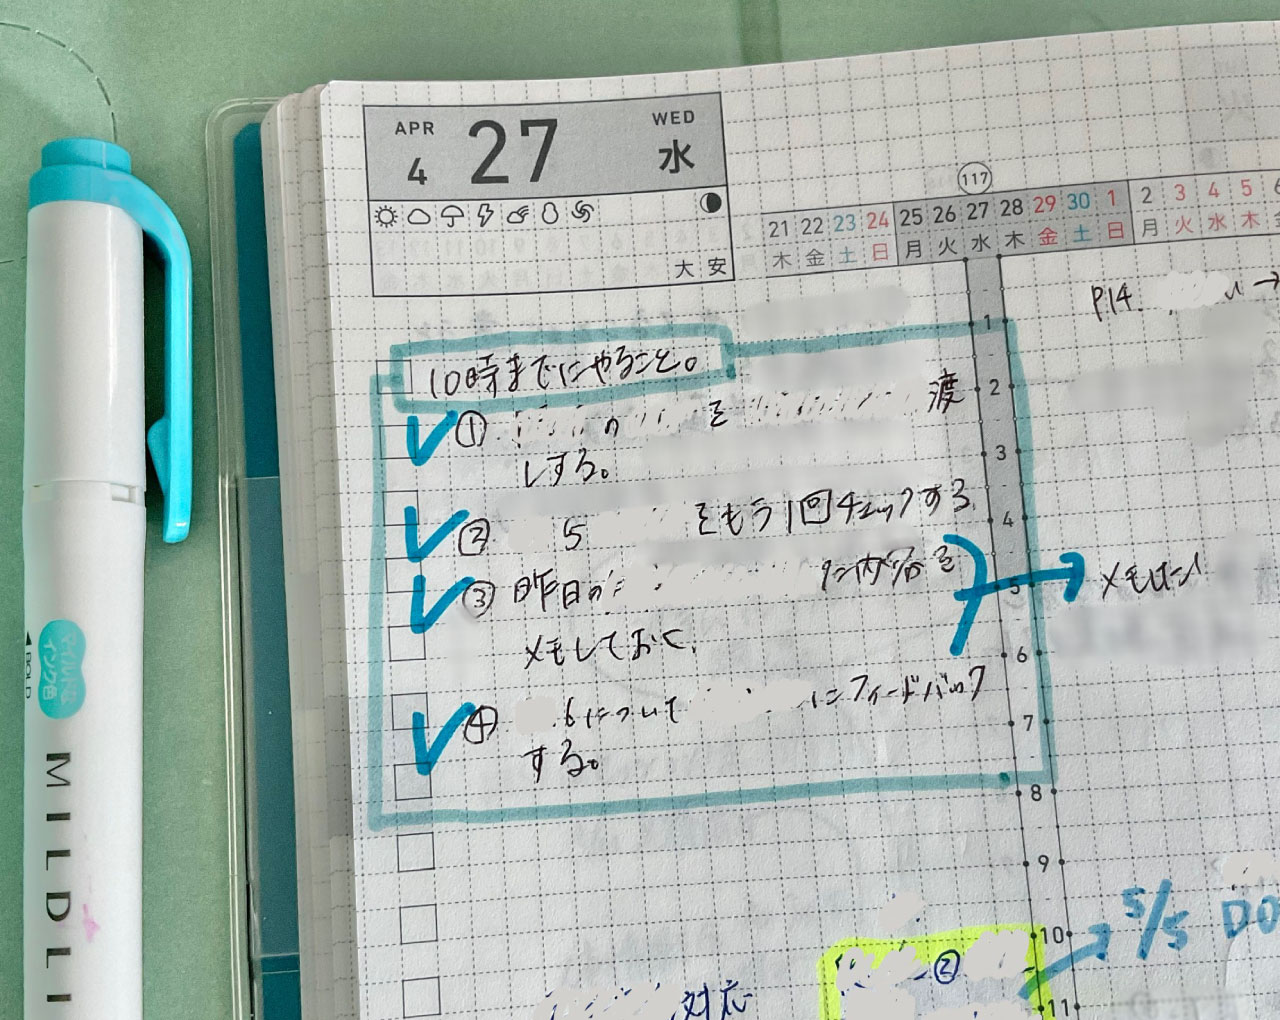 APR
4
27
WED
水
大安
117
21 22 23 24 25 26 27 28 29 30 1 2 3 4 5 6
木 金 土 日 月 火 水 木 金 土 日 月 火 水 木
P14. →
10時までにやること。
① の を 渡
しする。
② 5 をもう1回チェックする
③ 昨日の た内容を
メモしておく。
→ メモした!
④ .6について にフィードバック
する。
1
2
3
4
5
6
7
8
9
10
11
→ 5/5 DO
②
対応
マイルドな
インク色
◀BOLD
MILDLI